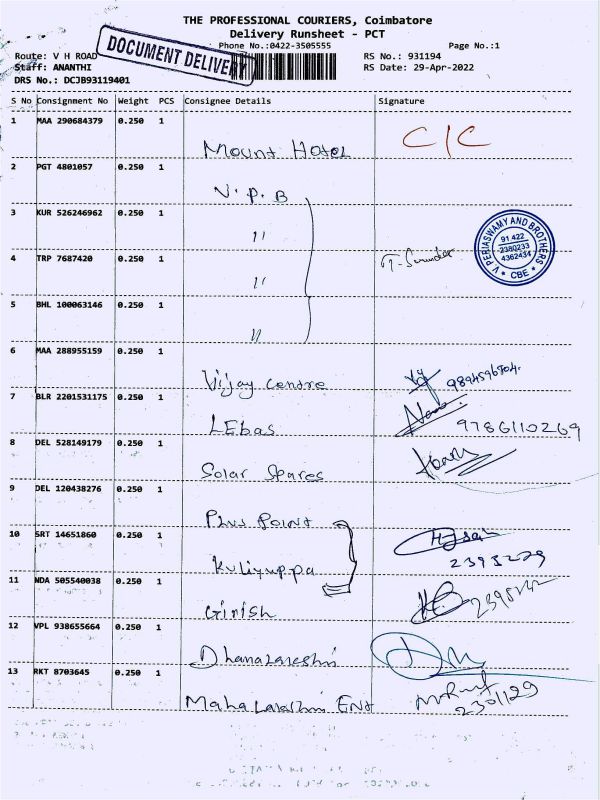 THE PROFESSIONAL COURIERS, Coimbatore
Delivery Runsheet - PCT
Phone No.:0422-3505555 Page No.:1
DOCUMENT DELIVERY
Route: V H ROAD RS No.: 931194
Staff: ANANTHI RS Date: 29-Apr-2022
DRS No.: DCJB93119401
S No Consignment No Weight PCS Consignee Details Signature
1 MAA 290684379 0.250 1
Mount Hotel C/C
2 PGT 4801057 0.250 1
V.P.B
3 KUR 526246962 0.250 1
"
V PERIASWAMY AND BROTHERS
91 422
2380233
4362434
* CBE *
4 TRP 7687420 0.250 1
"
5 BHL 100063146 0.250 1
"
6 MAA 288955159 0.250 1
Vijay Centre
7 BLR 2201531175 0.250 1
LEbas 9786110269
8 DEL 528149179 0.250 1
Solar Spares
9 DEL 120438276 0.250 1
Plus Point
10 SRT 14651860 0.250 1
Kuliyuppa
11 NDA 505540038 0.250 1
Girish
12 VPL 938655664 0.250 1
13 RKT 8703645 0.250 1
2301129